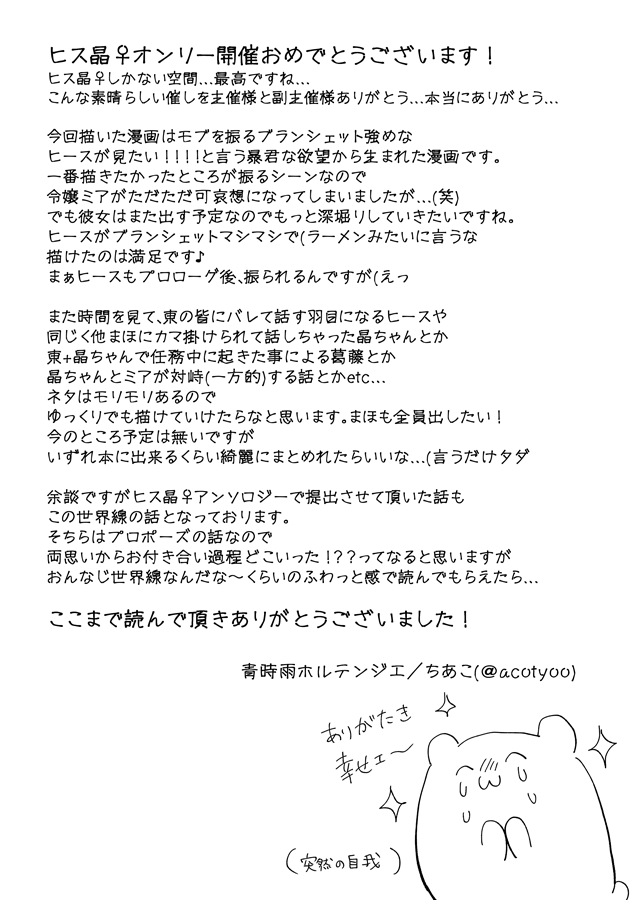 ヒス晶♀オンリー開催おめでとうございます！
ヒス晶♀しかない空間…最高ですね…
こんな素晴らしい催しを主催様と副主催様ありがとう…本当にありがとう…
今回描いた漫画はモブを振るブランシェット強めな
ヒースが見たい！！！！と言う暴君な欲望から生まれた漫画です。
一番描きたかったところが振るシーンなので
令嬢ミアがただただ可哀想になってしまいましたが…(笑)
でも彼女はまた出す予定なのでもっと深堀りしていきたいですね。
ヒースがブランシェットマシマシで(ラーメンみたいに言うな
描けたのは満足です♪
まぁヒースもプロローグ後、振られるんですが(えっ
また時間を見て、東の皆にバレて話す羽目になるヒースや
同じく他まほにカマ掛けられて話しちゃった晶ちゃんとか
東+晶ちゃんで任務中に起きた事による葛藤とか
晶ちゃんとミアが対峙(一方的)する話とかetc…
ネタはモリモリあるので
ゆっくりでも描けていけたらなと思います。まほも全員出したい！
今のところ予定は無いですが
いずれ本に出来るくらい綺麗にまとめれたらいいな…(言うだけタダ
余談ですがヒス晶♀アンソロジーで提出させて頂いた話も
この世界線の話となっております。
そちらはプロポーズの話なので
両思いからお付き合い過程どこいった！？？ってなると思いますが
おんなじ世界線なんだな～くらいのふわっと感で読んでもらえたら…
ここまで読んで頂きありがとうございました！
青時雨ホルテンジエ／ちあこ(@acotyoo)
ありがたき
幸せェ〜
(突然の自我)